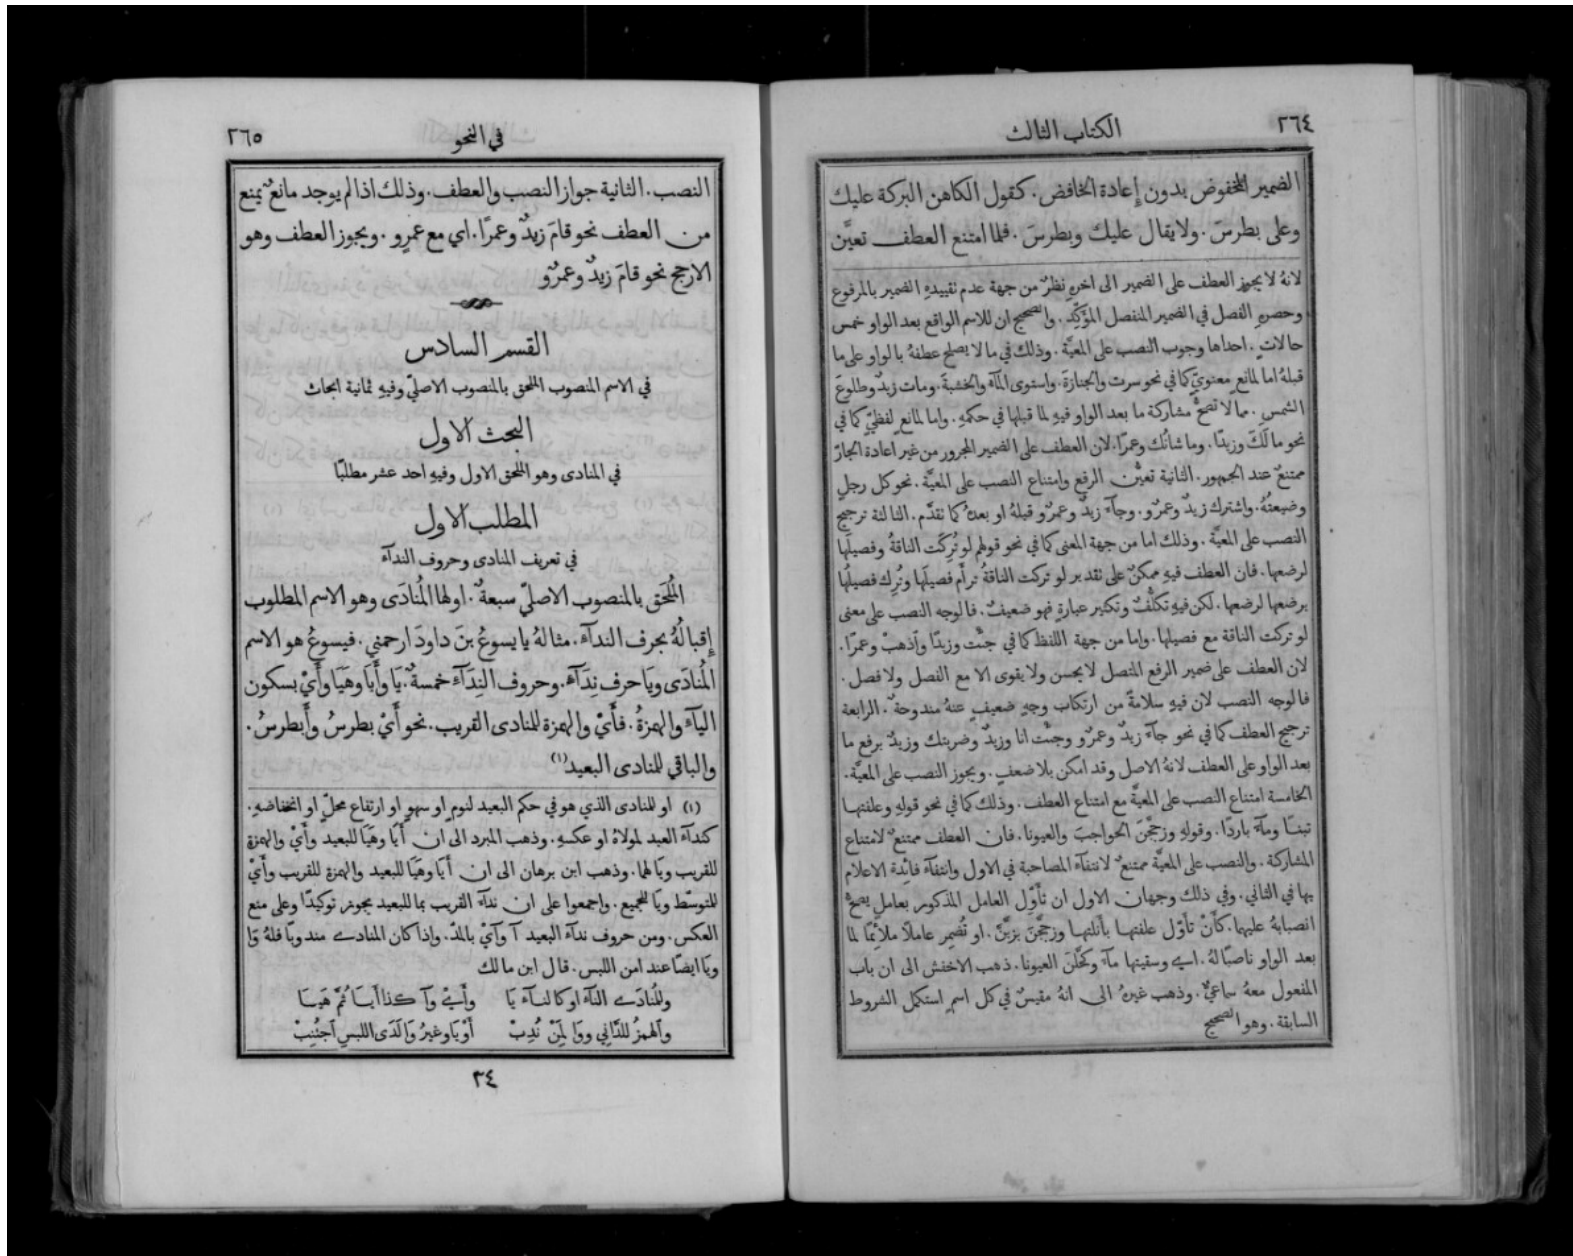 ٢٦٤
الكتاب الثالث
الضمير المخفوض بدون إعادة الخافض. كقول الكاهن البركة عليك
وعلى بطرسَ. ولا يقال عليك وبطرسَ. فلما امتنع العطف تعيَّن
لانهُ لا يجوز العطف على الضمير الى اخرهِ نظرٌ من جهة عدم تقييدهِ الضمير بالمرفوع
وحصرهِ الفصل في الضمير المنفصل المؤكِّد. والصحيح ان للاسم الواقع بعد الواو خمس
حالاتٍ. احداها وجوب النصب على المعيَّة. وذلك في ما لا يصلح عطفهُ بالواو على ما
قبلهُ اما لمانعٍ معنويٍّ كما في نحو سرت والجنازةَ. واستوى المآءُ والخشبةَ. ومات زيدٌ وطلوعَ
الشمسِ. مما لا تصحُّ مشاركة ما بعد الواو فيهِ لما قبلها في حكمهِ. واما لمانعٍ لفظيٍّ كما في
نحو مالَكَ وزيدًا. وما شانُك وعمرًا. لان العطف على الضمير المجرور من غير اعادة الجارّ
ممتنعٌ عند الجمهور. الثانية تعيُّن الرفع وامتناع النصب على المعيَّة. نحو كل رجلٍ
وضيعتُهُ. واشترك زيدٌ وعمرٌو. وجآءَ زيدٌ وعمرٌو قبلهُ او بعدهُ كما تقدَّم. الثالثة ترجيح
النصب على المعيَّة. وذلك اما من جهة المعنى كما في نحو قولهم لو تُرِكَت الناقةُ وفصيلَها
لرضعها. فان العطف فيهِ ممكنٌ على تقدير لو تركت الناقةُ ترأَم فصيلَها وتُرِك فصيلُها
برضعها لرضعها. لكن فيهِ تكلُّفٌ وتكثير عبارةٍ فهو ضعيفٌ. فالوجه النصب على معنى
لو تركت الناقة مع فصيلها. واما من جهة اللفظ كما في جئْت وزيدًا واَذهبْ وعمرًا.
لان العطف على ضمير الرفع المتصل لا يحسن ولا يقوى الا مع الفصل ولا فصل.
فالوجه النصب لان فيهِ سلامةً من ارتكاب وجهٍ ضعيفٍ عنهُ مندوحةٌ. الرابعة
ترجيح العطف كما في نحو جآءَ زيدٌ وعمرٌو وجئْت انا وزيدٌ وضربتك وزيدٌ برفع ما
بعد الواو على العطف لانهُ الاصل وقد امكن بلا ضعفٍ. ويجوز النصب على المعيَّة.
الخامسة امتناع النصب على المعيَّة مع امتناع العطف. وذلك كما في نحو قولهِ وعلفتها
تبنًا ومآءً باردًا. وقولهِ وزجَّجْنَ الحواجبَ والعيونا. فان العطف ممتنعٌ لامتناع
المشاركة. والنصب على المعيَّة ممتنعٌ لانتفآءِ المصاحبة في الاول وانتفآءِ فائدة الاعلام
بها في الثاني. وفي ذلك وجهان الاول ان تأَوِّل العامل المذكور بعاملٍ يصحُّ
انصبابهُ عليهما. كأَنْ تأَوِّل علفتها بأَنلتها وزجَّجْنَ بزيَّنَّ. او تُضمِر عاملًا ملائِمًا لما
بعد الواو ناصبًا لهُ. اي وسقيتها مآءً وكحَّلنَ العيونا. ذهب الاخفش الى ان باب
المفعول معهُ سماعيٌّ. وذهب غيرهُ الى انهُ مقيسٌ في كل اسمٍ استكمل الشروط
السابقة. وهو الصحيح
٢٦٥
في النحو
النصب. الثانية جواز النصب والعطف. وذلك اذا لم يوجد مانعٌ يمنع
من العطف نحو قامَ زيدٌ وعمرًا. اي مع عمرٍو. ويجوز العطف وهو
الارجح نحو قامَ زيدٌ وعمرٌو
القسم السادس
في الاسم المنصوب الملحق بالمنصوب الاصليّ وفيهِ ثمانية ابحاث
البحث الاول
في المنادى وهو الملحق الاول وفيهِ احد عشر مطلبًا
المطلب الاول
في تعريف المنادى وحروف الندآءِ
المُلحَق بالمنصوب الاصليّ سبعةٌ. اولها المُنادَى وهو الاسم المطلوب
إِقبالُهُ بحرف الندآءِ. مثالهُ يا يسوعُ بنَ داودَ ارحمني. فيسوعُ هو الاسم
المُنادَى ويَا حرف نِدَآءٍ. وحروف النِدَآءِ خمسةٌ. يَا وأَيَا وهَيَا وأَيْ بسكون
اليآءِ والهمزةُ. فأَيْ والهمزة للمنادى القريب. نحو أَيْ بطرسُ وأَبطرسُ.
والباقي للمنادى البعيد(١)
(١) او للمنادى الذي هو في حكم البعيد لنومٍ او سهوٍ او ارتفاع محلٍّ او انخفاضهِ.
كندآءِ العبد لمولاهُ او عكسهِ. وذهب المبرد الى ان أَيَا وهَيَا للبعيد وأَيْ والهمزة
للقريب ويَا لهما. وذهب ابن برهان الى ان أَيَا وهَيَا للبعيد والهمزة للقريب وأَيْ
للمتوسّط ويَا للجميع. واجمعوا على ان ندآءَ القريب بما للبعيد يجوز توكيدًا وعلى منع
العكس. ومن حروف ندآءِ البعيد آ وآيْ بالمدّ. وإذا كان المنادى مندوبًا فلهُ وَا
ويَا ايضًا عند امن اللبس. قال ابن مالك
وللمُنادَى النآءِ او كالنآءِ يَا    وأَيْ وآ كذا أَيَا ثُمَّ هَيَا
واَلهمزُ للدَّاني ووَا لِمَنْ نُدِبْ    أَوْ يَا وغيرُ وَا لَدَى اللبسِ اَجتُنِبْ
٣٤